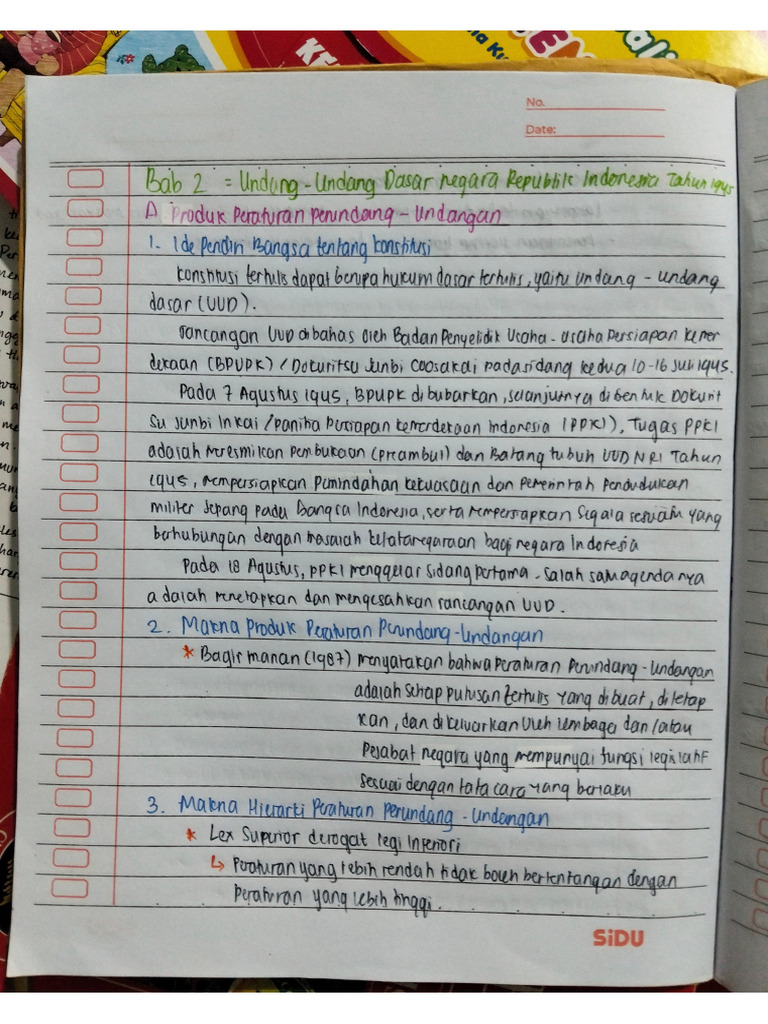 No.
Date:
Bab 2 = Undang-Undang Dasar negara Republik Indonesia Tahun 1945
A Produk Peraturan Perundang-Undangan
1. Ide Pendiri Bangsa tentang Konstitusi
Konstitusi tertulis dapat berupa hukum dasar tertulis, yaitu undang-undang
dasar (UUD).
Rancangan UUD dibahas oleh Badan Penyelidik Usaha-usaha Persiapan Kemer
dekaan (BPUPK) / Dokuritsu Junbi Coosakai pada sidang kedua 10-16 Juli 1945.
Pada 7 Agustus 1945, BPUPK dibubarkan, selanjutnya dibentuk Dokurit
Su Junbi Inkai / Panitia Persiapan Kemerdekaan Indonesia (PPKI), Tugas PPKI
adalah Meresmikan Pembukaan (Preambul) dan Batang tubuh UUD NRI Tahun
1945, mempersiapkan Pemindahan kekuasaan dari Pemerintah Pendudukan
militer Jepang pada Bangsa Indonesia, serta mempersiapkan Segala sesuatu yang
berhubungan dengan masalah ketatanegaraan bagi negara Indonesia
Pada 18 Agustus, PPKI menggelar Sidang Pertama. Salah satu agendanya
adalah menetapkan dan mengesahkan rancangan UUD.
2. Makna Produk Peraturan Perundang-Undangan
* Bagir manan (1987) menyatakan bahwa Peraturan Perundang-Undangan
adalah Setiap putusan tertulis yang dibuat, ditetap
kan, dan dikeluarkan Oleh Lembaga dan/atau
Pejabat negara yang mempunyai fungsi legislatif
Sesuai dengan tata cara yang berlaku
3. Makna Hierarki Peraturan Perundang-Undangan
* Lex Superior derogat legi Inferiori
↳ Peraturan yang lebih rendah tidak boleh bertentangan dengan
Peraturan yang lebih tinggi.
SiDU